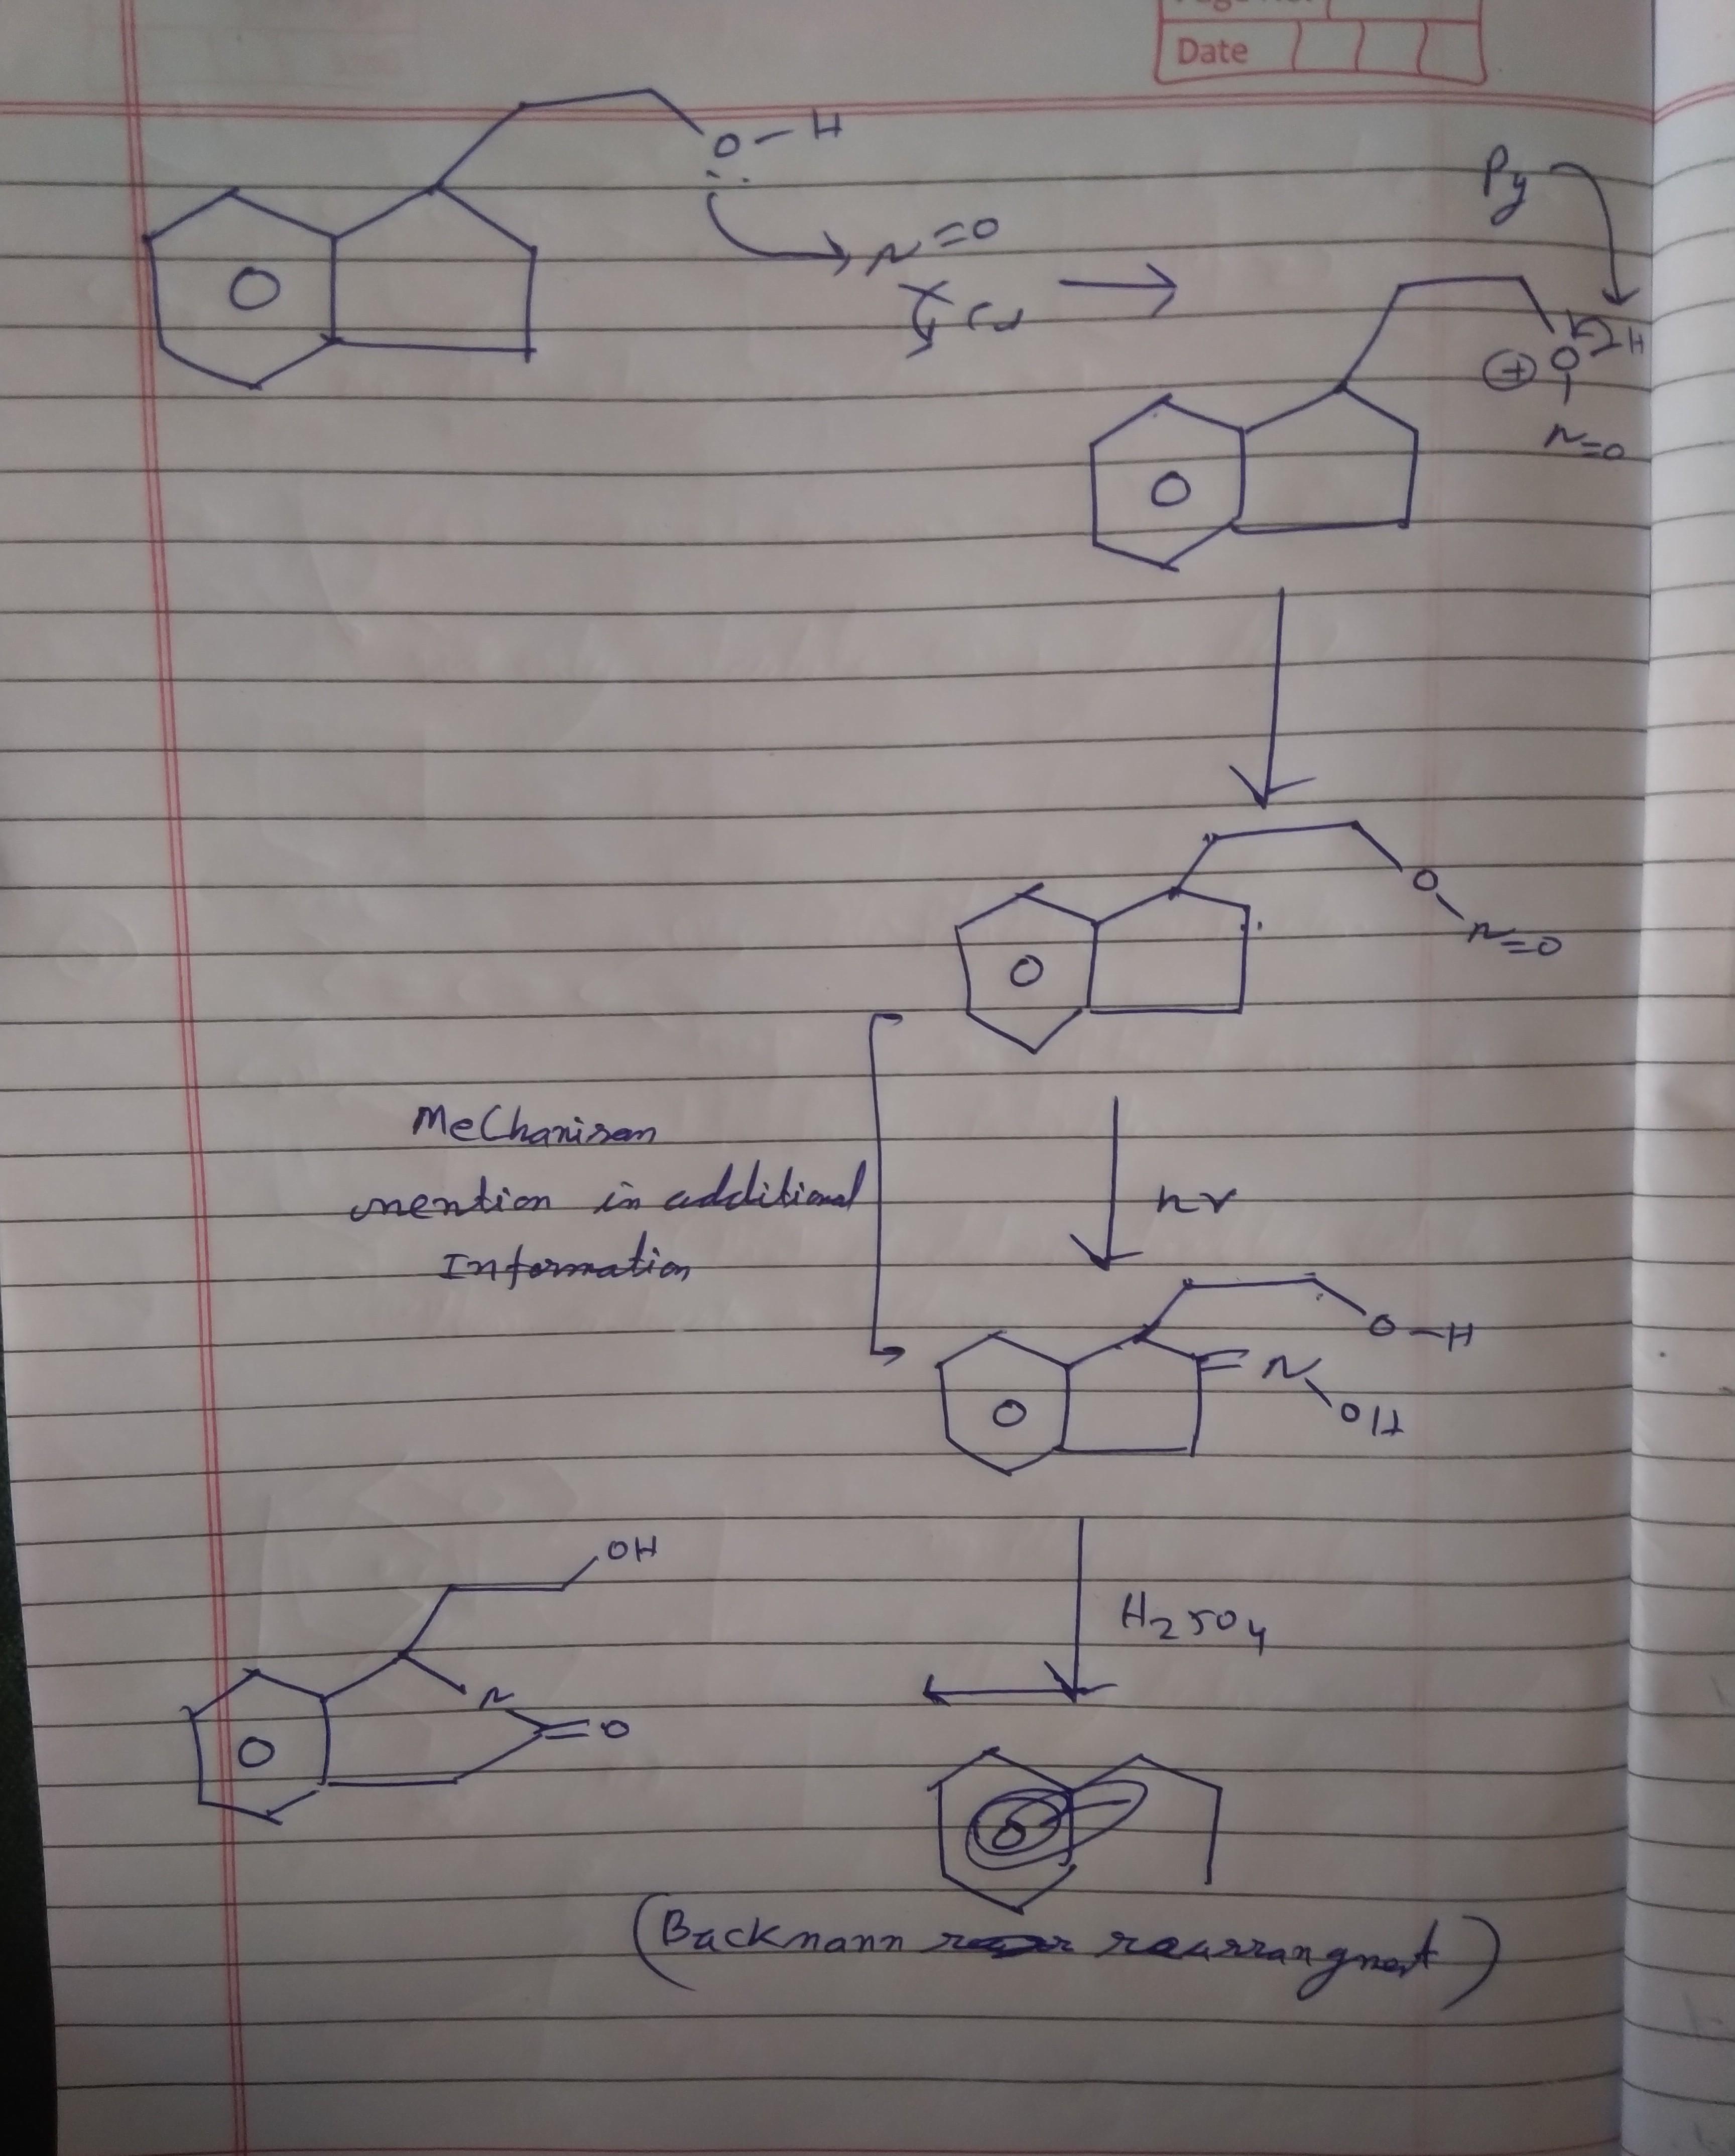 Date
O-H
Py
N=O
Cl
H
O
O
⊕ O
N=O
O
O
N=O
O
Mechanism
mention in additional
Information
hν
O-H
=N
OH
O
OH
H2SO4
N
=O
O
(Backmann rearrangment)